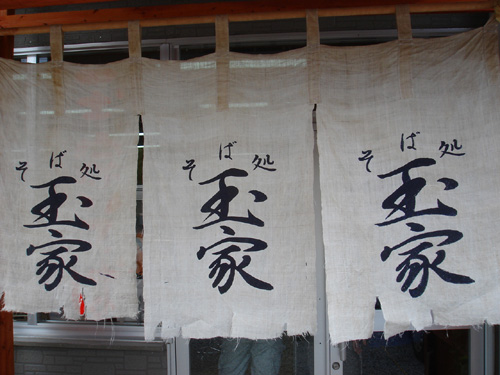 そば処
玉家
そば処
玉家
そば処
玉家